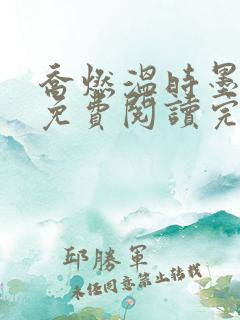 喬燃溫時墨
免費閱讀完
邱勝軍
未經同意禁止轉載